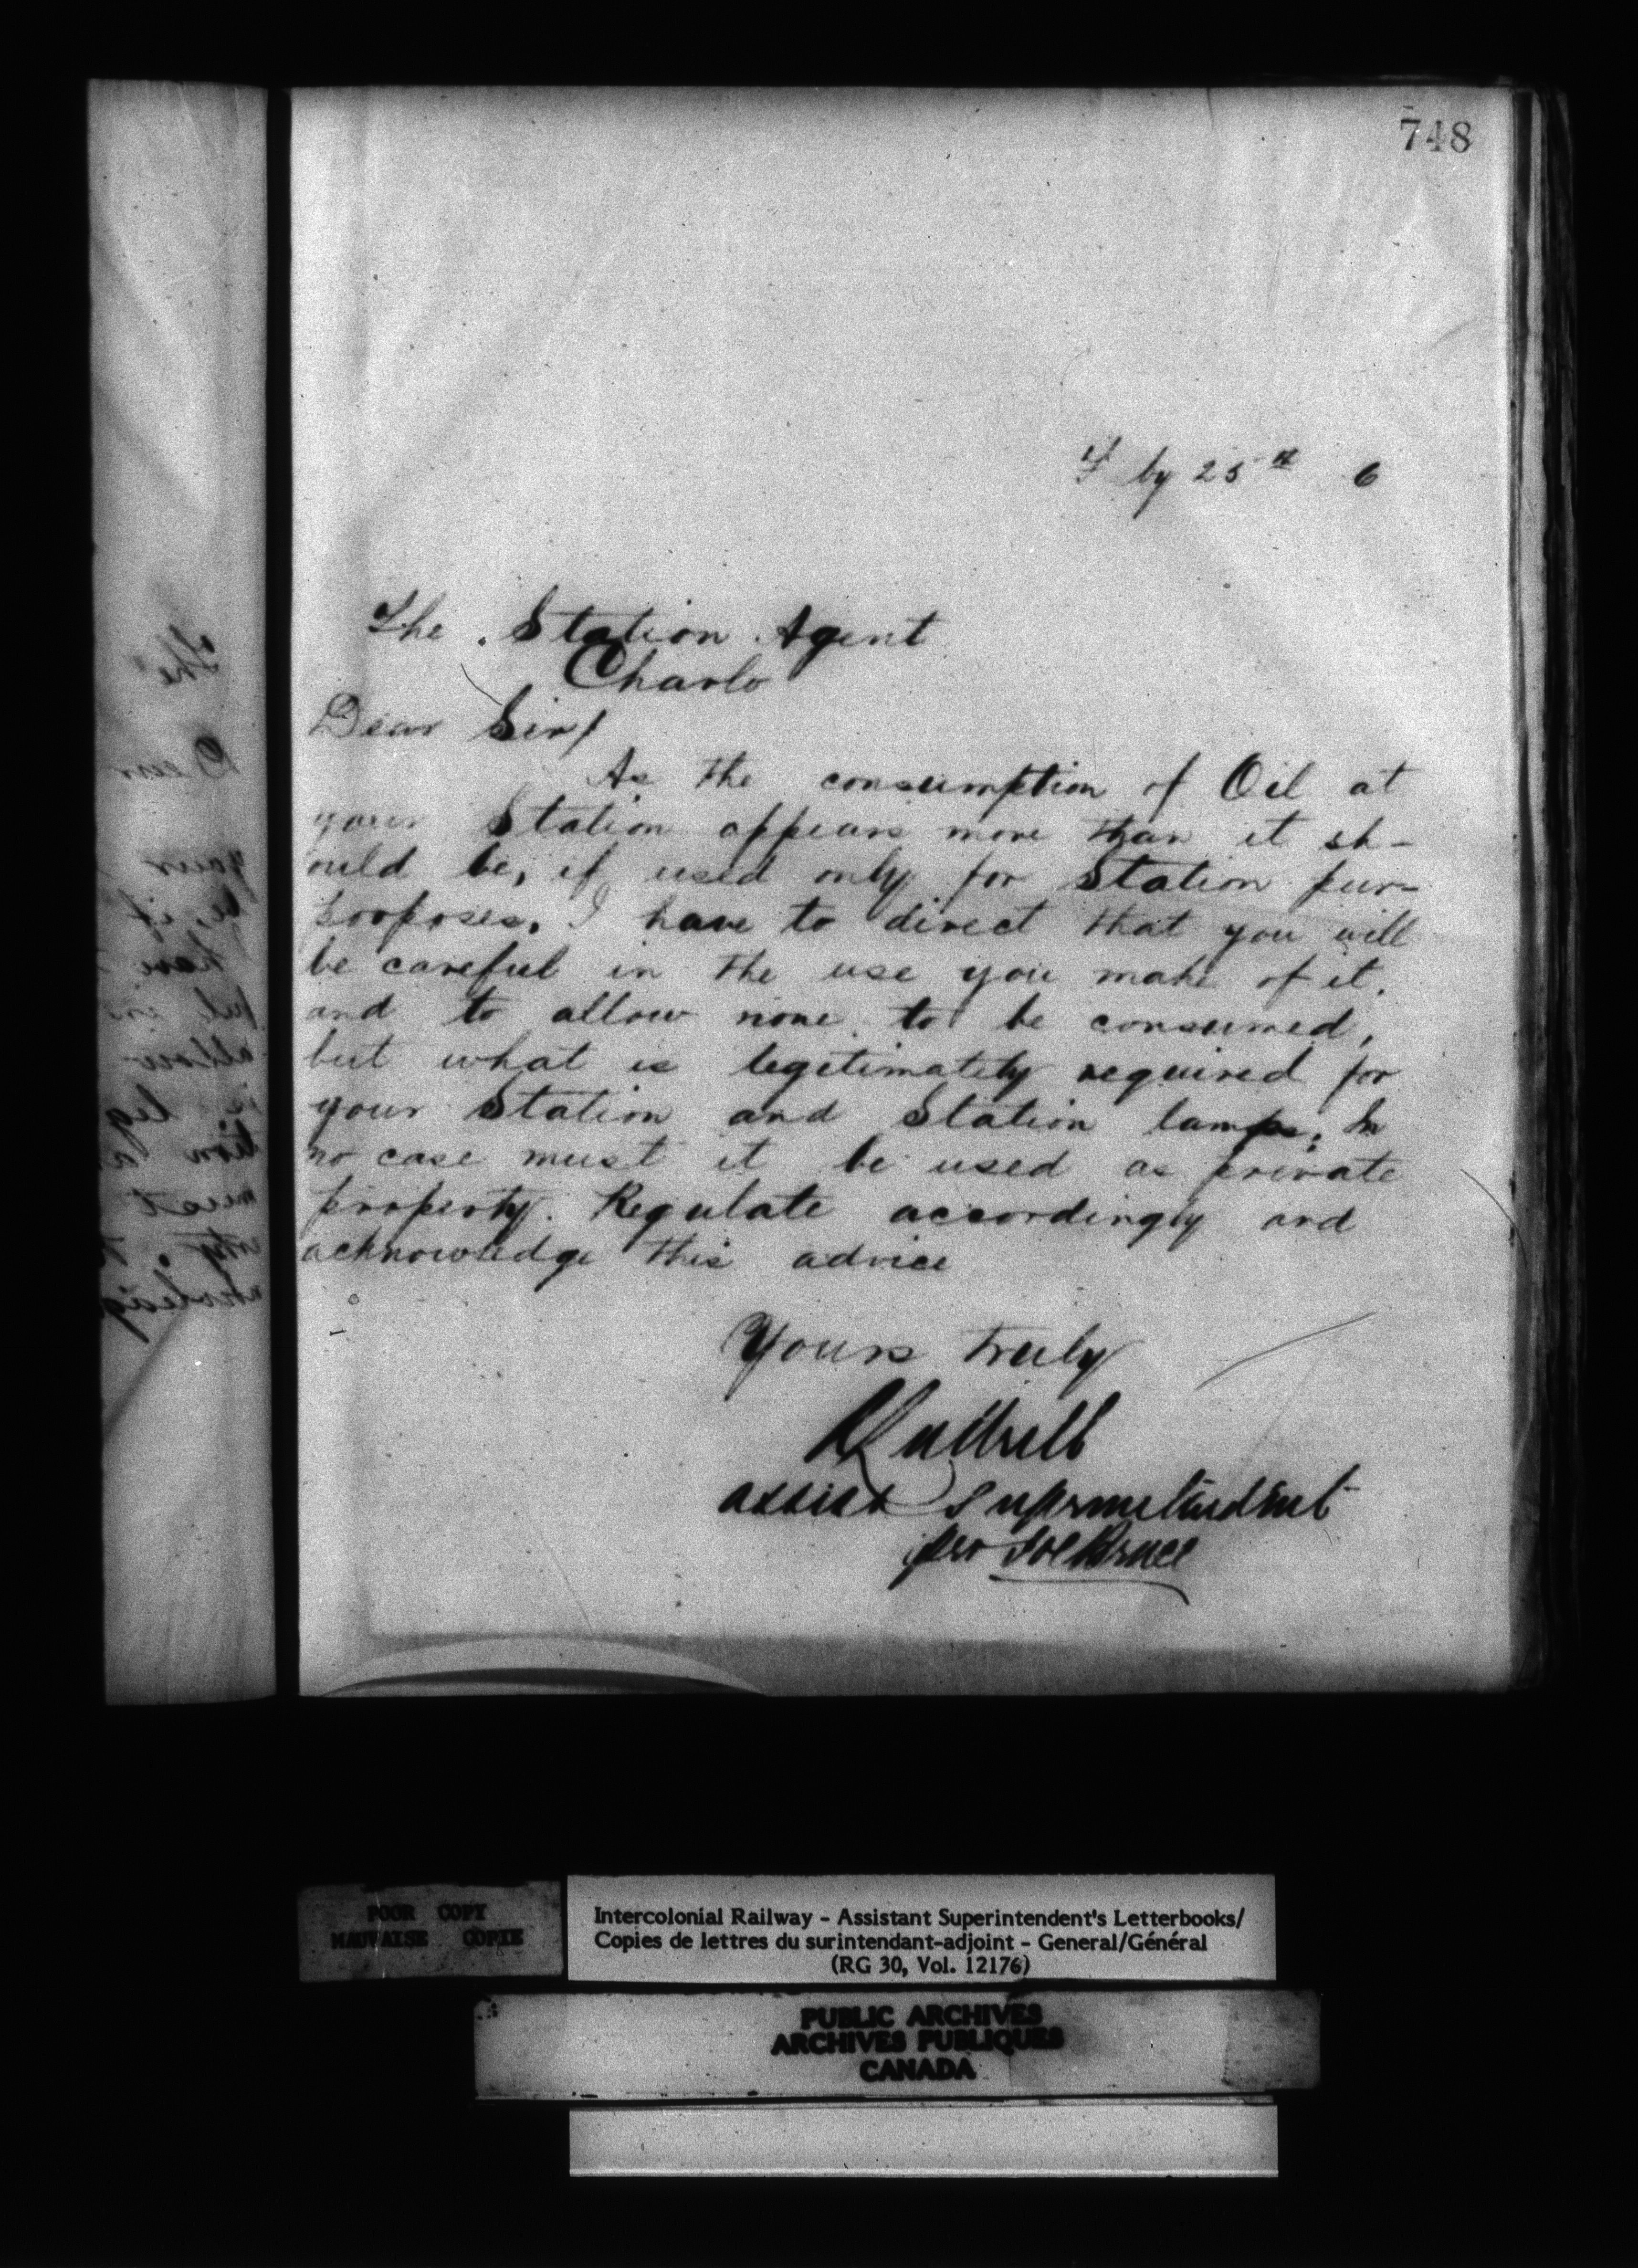 748
F by 25th 6
The Station Agent
Charlo
Dear Sir/
As the consumption of Oil at
your Station appears more than it sh-
ould be, if used only for Station pur-
porposes. I have to direct that you will
be careful in the use you make of it,
and to allow none to be consumed,
but what is legetimately required for
your Station and Station lamps. In
no case must it be used as private
property. Regulate accordingly and
acknowledge this advice
Yours truly
assist
per
POOR COPY
MAUVAISE COPIE
Intercolonial Railway - Assistant Superintendent's Letterbooks/
Copies de lettres du surintendant-adjoint - General/Général
(RG 30, Vol. 12176)
PUBLIC ARCHIVES
ARCHIVES PUBLIQUES
CANADA